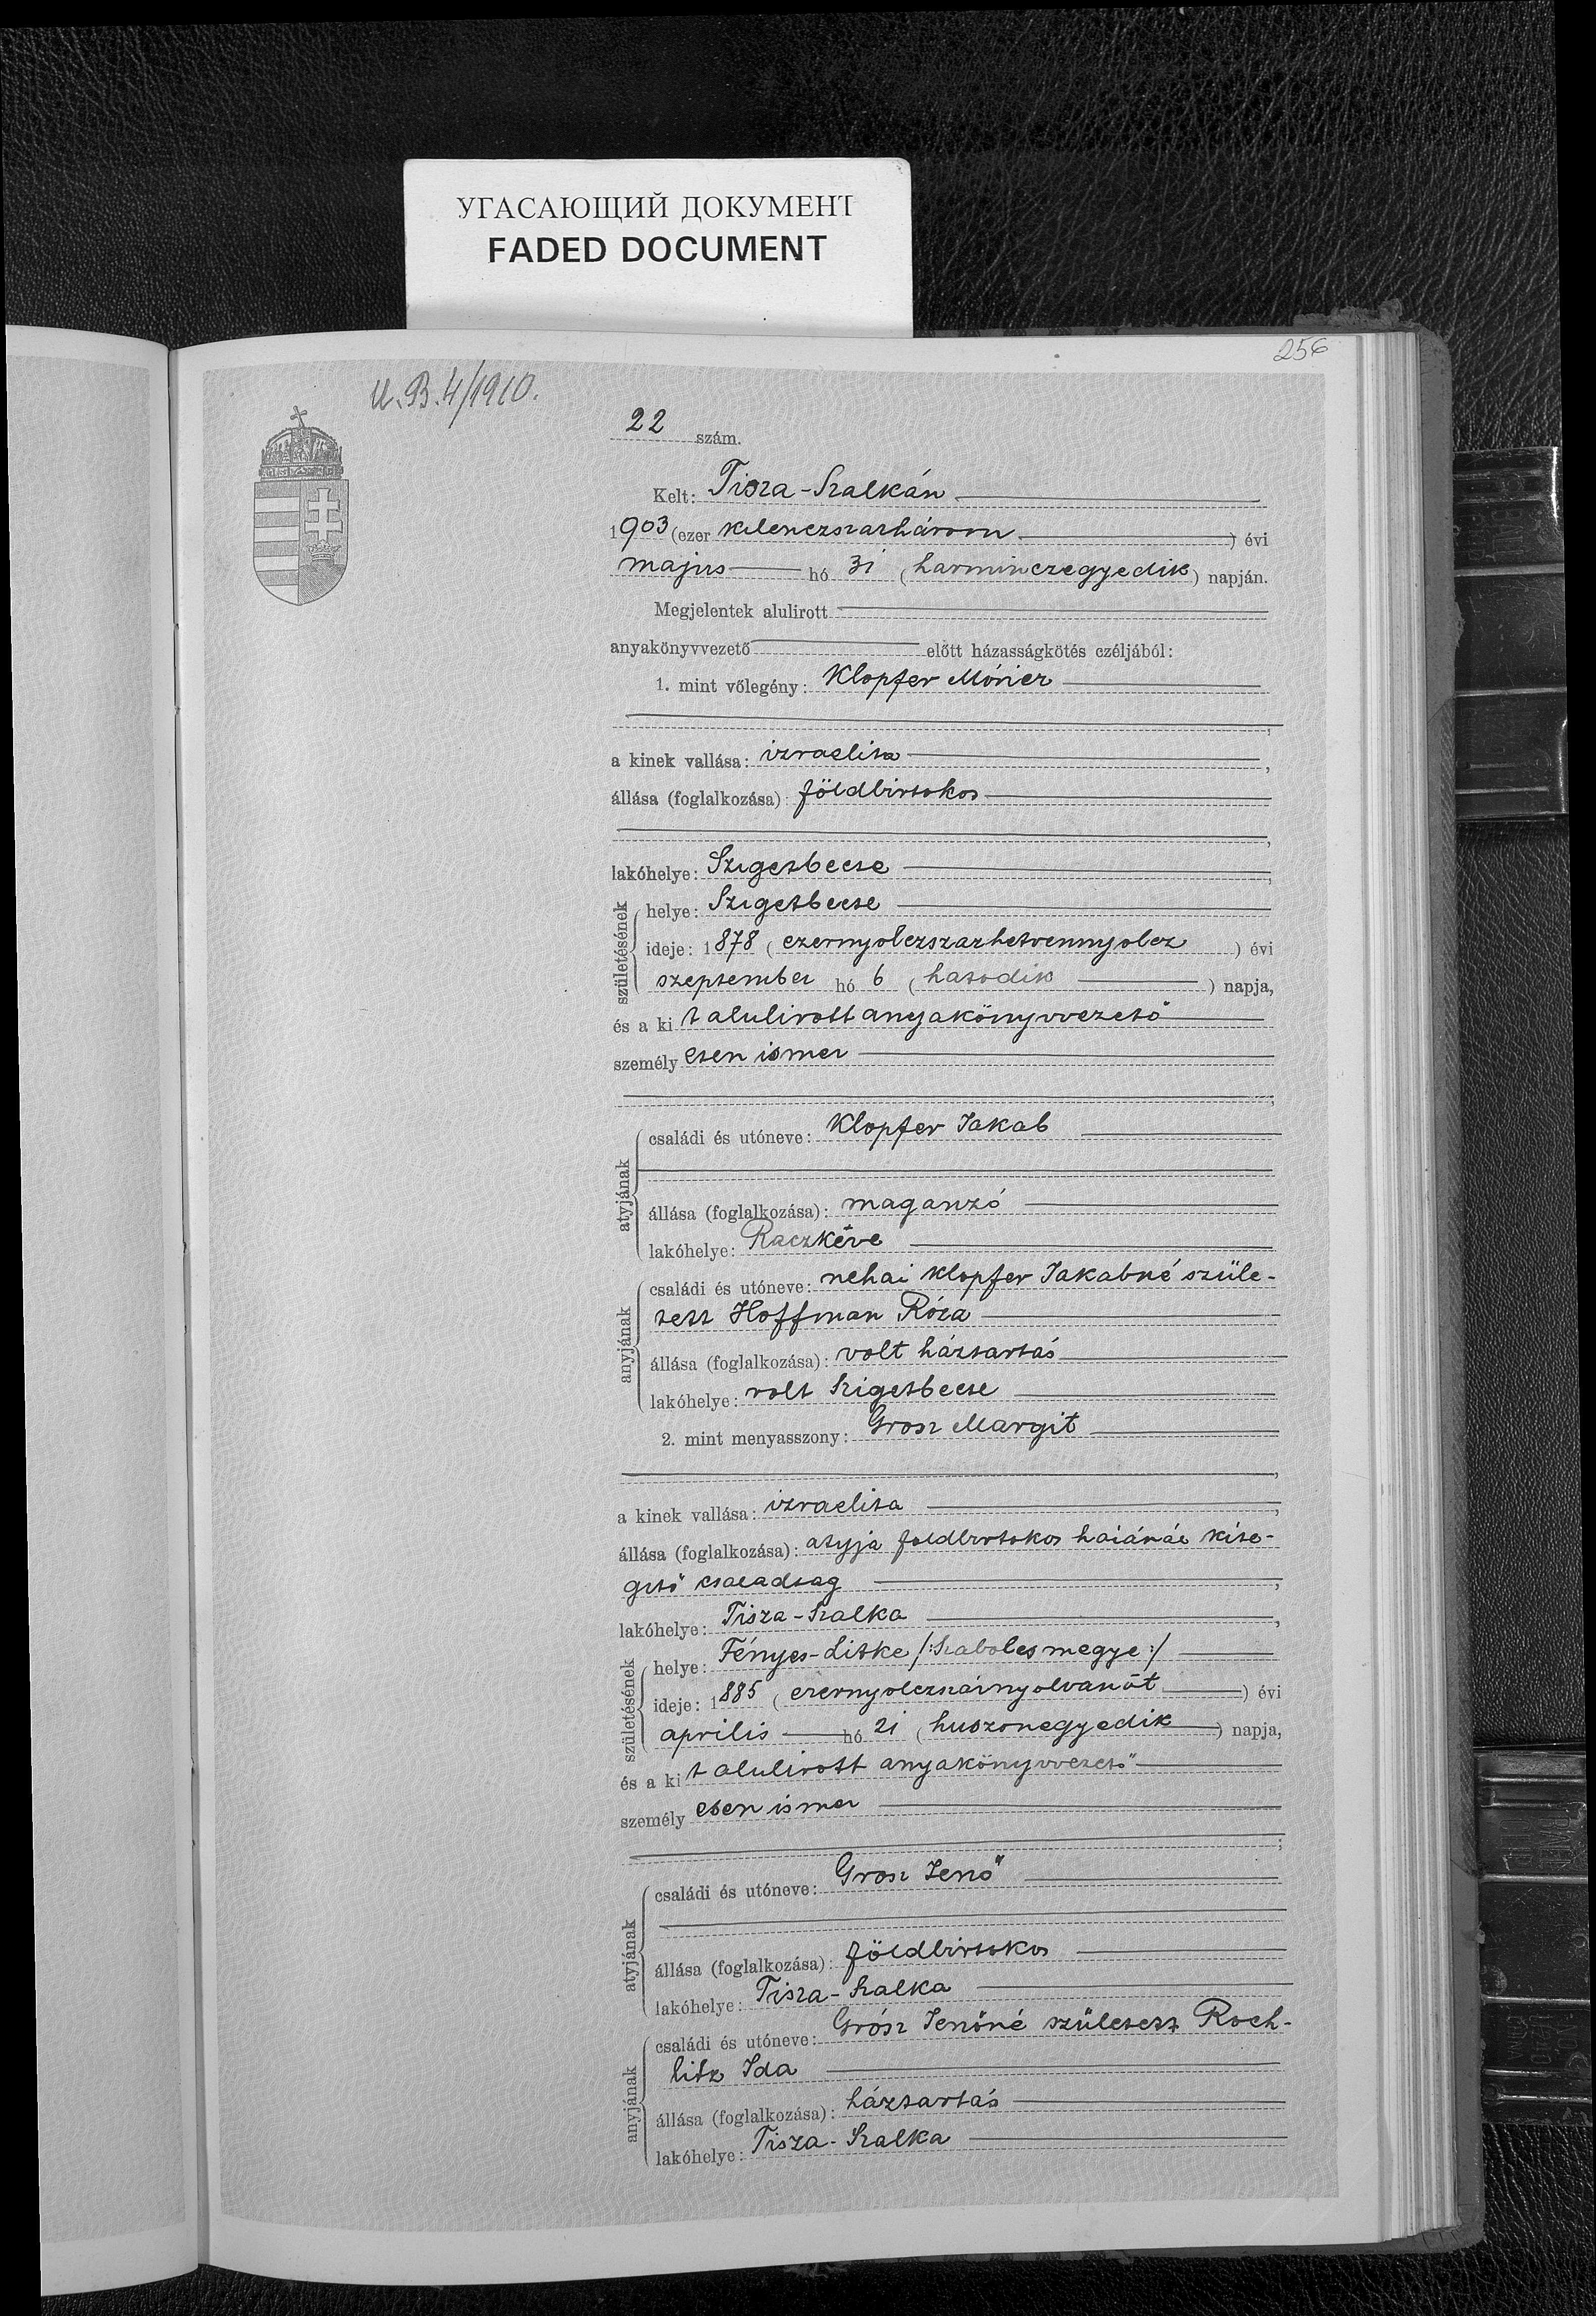 УГАСАЮЩИЙ ДОКУМЕНТ
FADED DOCUMENT
256
U.B.4/1910.
22 szám.
Kelt: Tisza-Szalkán
1903 (ezer kilenczszazhárom) évi
majus hó 31 (harminczegyedik) napján.
Megjelentek alulirott
anyakönyvvezető előtt házasságkötés czéljából:
1. mint vőlegény: Klopfer Móricz
a kinek vallása: izraelita,
állása (foglalkozása): földbirtokos,
lakóhelye: Szigetbecse,
születésének
helye: Szigetbecse
ideje: 1878 (ezernyolczszazhetvennyolcz) évi
szeptember hó 6 (hatodik) napja,
és a ki t alulirott anyakönyvvezető
személy esen ismer;
atyjának
családi és utóneve: Klopfer Jakab
állása (foglalkozása): maganzó
lakóhelye: Raczkéve
anyjának
családi és utóneve: nehai Klopfer Jakabné szüle-
tett Hoffman Róza
állása (foglalkozása): volt háztartás
lakóhelye: volt Szigetbecse
2. mint menyasszony: Grosz Margit,
a kinek vallása: izraelita,
állása (foglalkozása): atyja foldbirtokos házánál kise-
gitő csaladtag,
lakóhelye: Tisza-Szalka,
születésének
helye: Fényes-Litke /:Szabolcsmegye:/
ideje: 1885 (ezernyolczszáznyolvanöt) évi
aprilis hó 21 (huszonegyedik) napja,
és a ki t alulirott anyakönyvvezető
személy esen ismer;
atyjának
családi és utóneve: Grosz Jenő
állása (foglalkozása): földbirtokos
lakóhelye: Tisza-Szalka
anyjának
családi és utóneve: Grósz Jenőné született Roch-
litz Ida
állása (foglalkozása): háztartás
lakóhelye: Tisza-Szalka